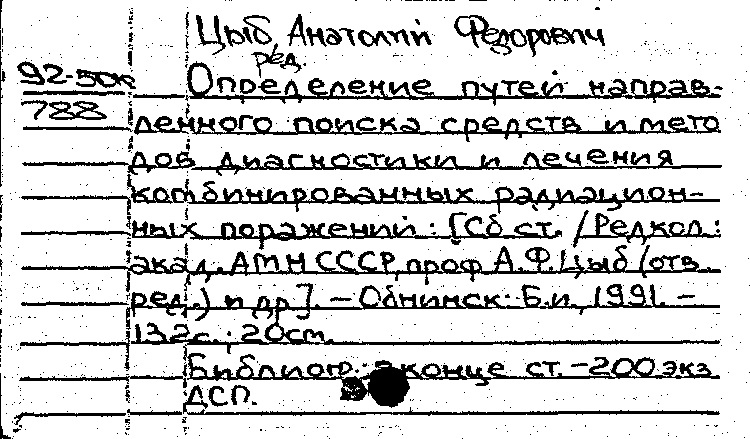 Цыб, Анатолий Федорович
ред.
92-50к Определение путей направ-
788 ленного поиска средств и мето
дов диагностики и лечения
комбинированных радиацион-
ных поражений : [Сб ст. / Редкол :
акад. АМН СССР, проф А.Ф. Цыб (отв.
ред.) и др]. - Обнинск : Б.и., 1991. -
132с. ; 20см.
Библиогр. в конце ст. - 200 экз
ДСП.